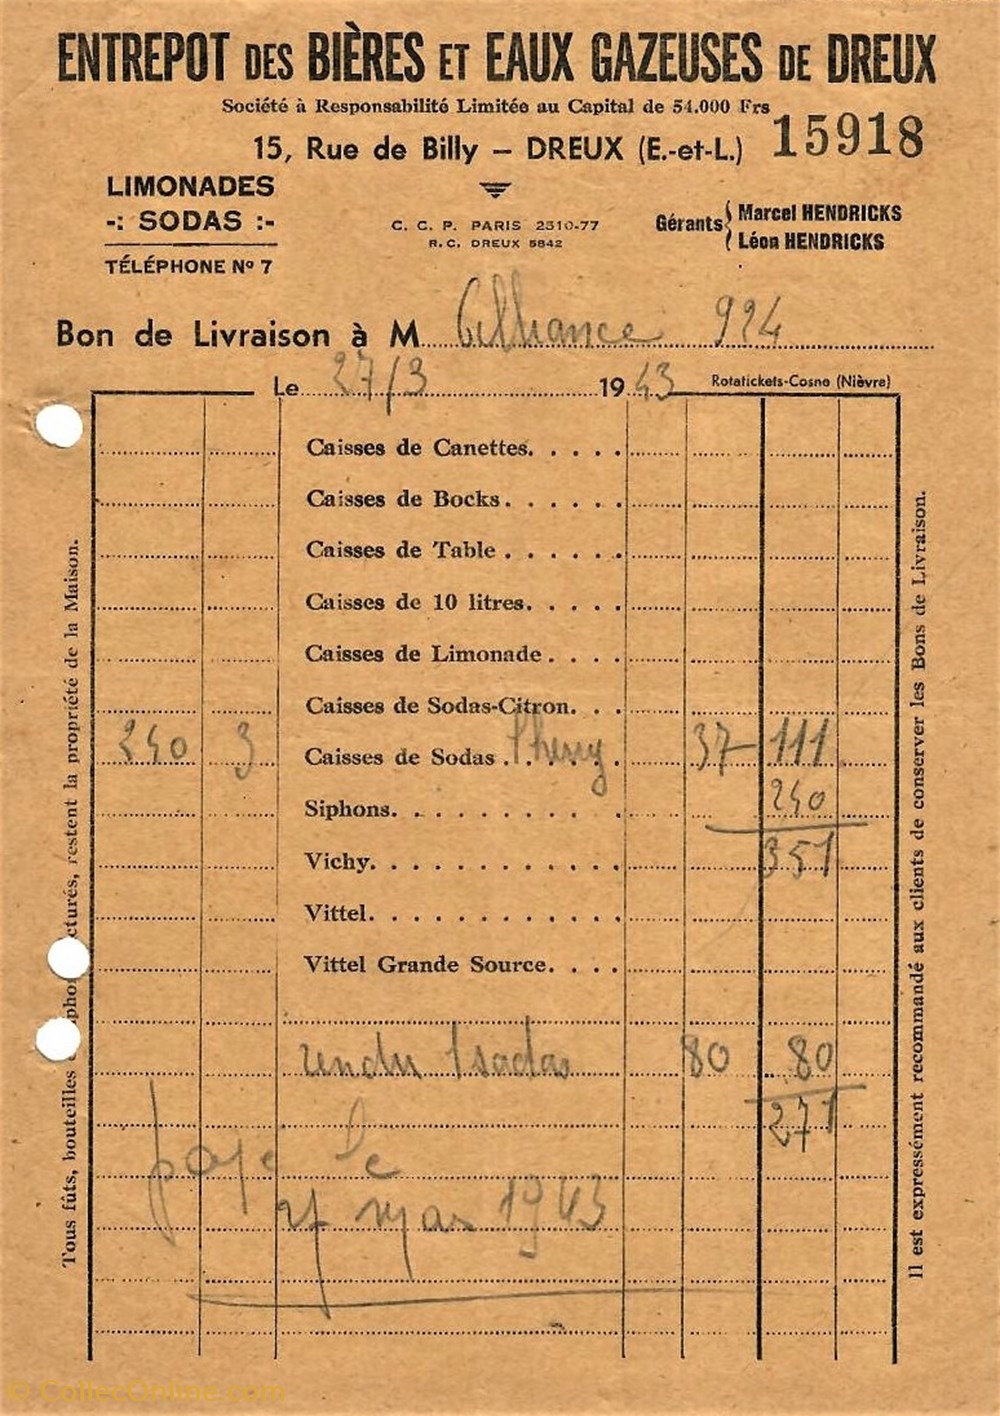 ENTREPOT DES BIÈRES ET EAUX GAZEUSES DE DREUX
Société à Responsabilité Limitée au Capital de 54.000 Frs
15918
15, Rue de Billy – DREUX (E.-et-L.)
LIMONADES
-: SODAS :-
TÉLÉPHONE Nº 7
C. C. P. PARIS 2510-77
R. C. DREUX 5842
Gérants { Marcel HENDRICKS
Léon HENDRICKS
Bon de Livraison à M 924
Le 27/3 1943
Rotatickets-Cosne (Nièvre)
Caisses de Canettes. . . . .
Caisses de Bocks. . . . . .
Caisses de Table . . . . . .
Caisses de 10 litres. . . . .
Caisses de Limonade . . . .
Caisses de Sodas-Citron. . .
240 3 Caisses de Sodas . . . . . . 37 111
Siphons. . . . . . . . . . 240
Vichy. . . . . . . . . . . . 351
Vittel. . . . . . . . . . . .
Vittel Grande Source. . . .
rendu 80 80
271
payé le
27 mars 1943
Tous fûts, bouteilles cturés, restent la propriété de la Maison.
Il est expressément recommandé aux clients de conserver les Bons de Livraison.
© CollecOnline.com